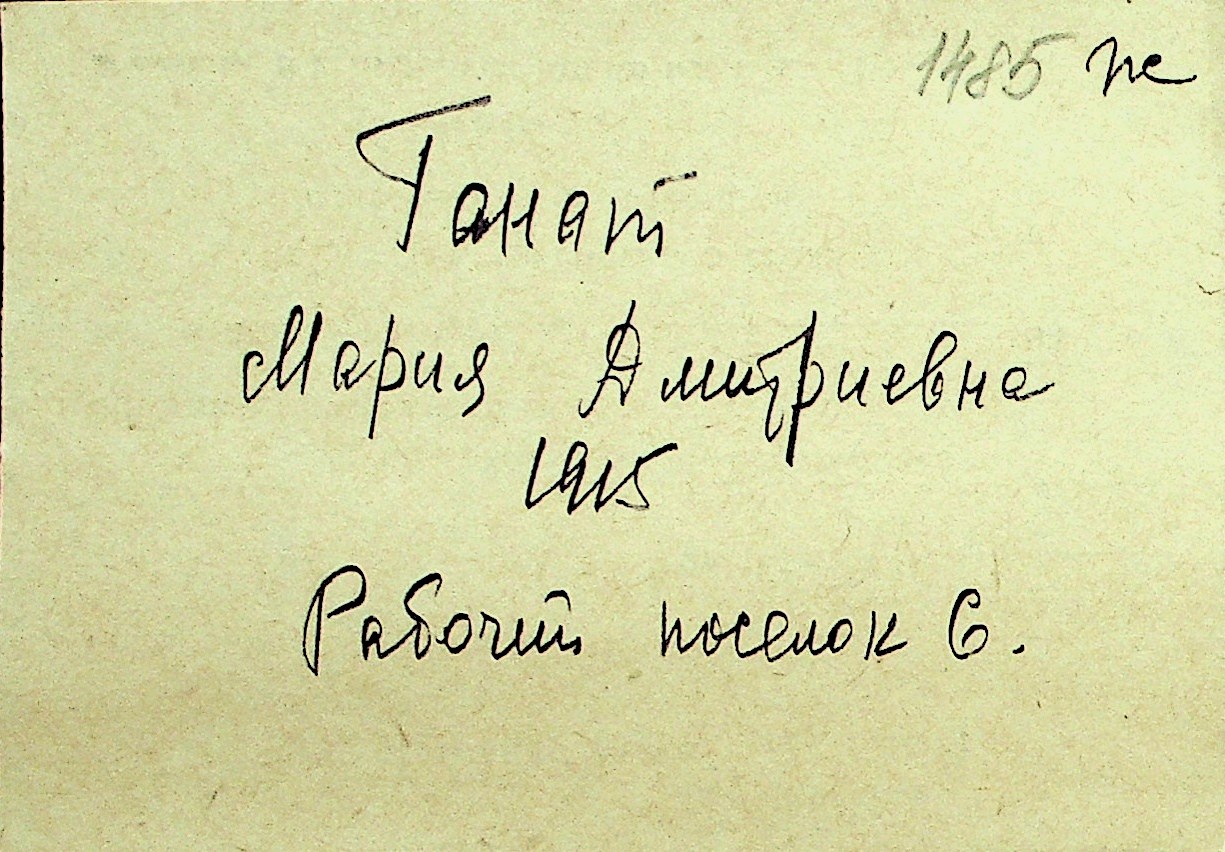 1485 пе
Ганат
Мария Дмитриевна
1915
Рабочий поселок 6.